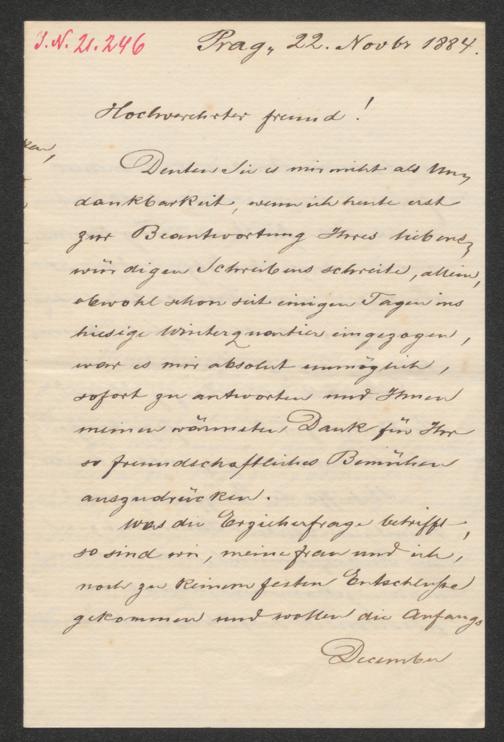 I.N. 21.246
Prag, 22. Novbr 1884.
Hochverehrter Freund!
ken,
Deuten Sie es mir nicht als Un-
dankbarkeit, wenn ich heute erst
zur Beantwortung Ihres liebens-
würdigen Schreibens schreite, allein,
obwohl schon seit einigen Tagen ins
hiesige Winterquartier eingezogen,
war es mir absolut unmöglich,
sofort zu antworten und Ihnen
meinen wärmsten Dank für Ihr
so freundschaftliches Bemühen
auszudrücken.
Was die Erzieherfrage betrifft,
so sind wir, meine Frau und ich,
noch zu keinem festen Entschluße
gekommen und wollen die Anfangs
December